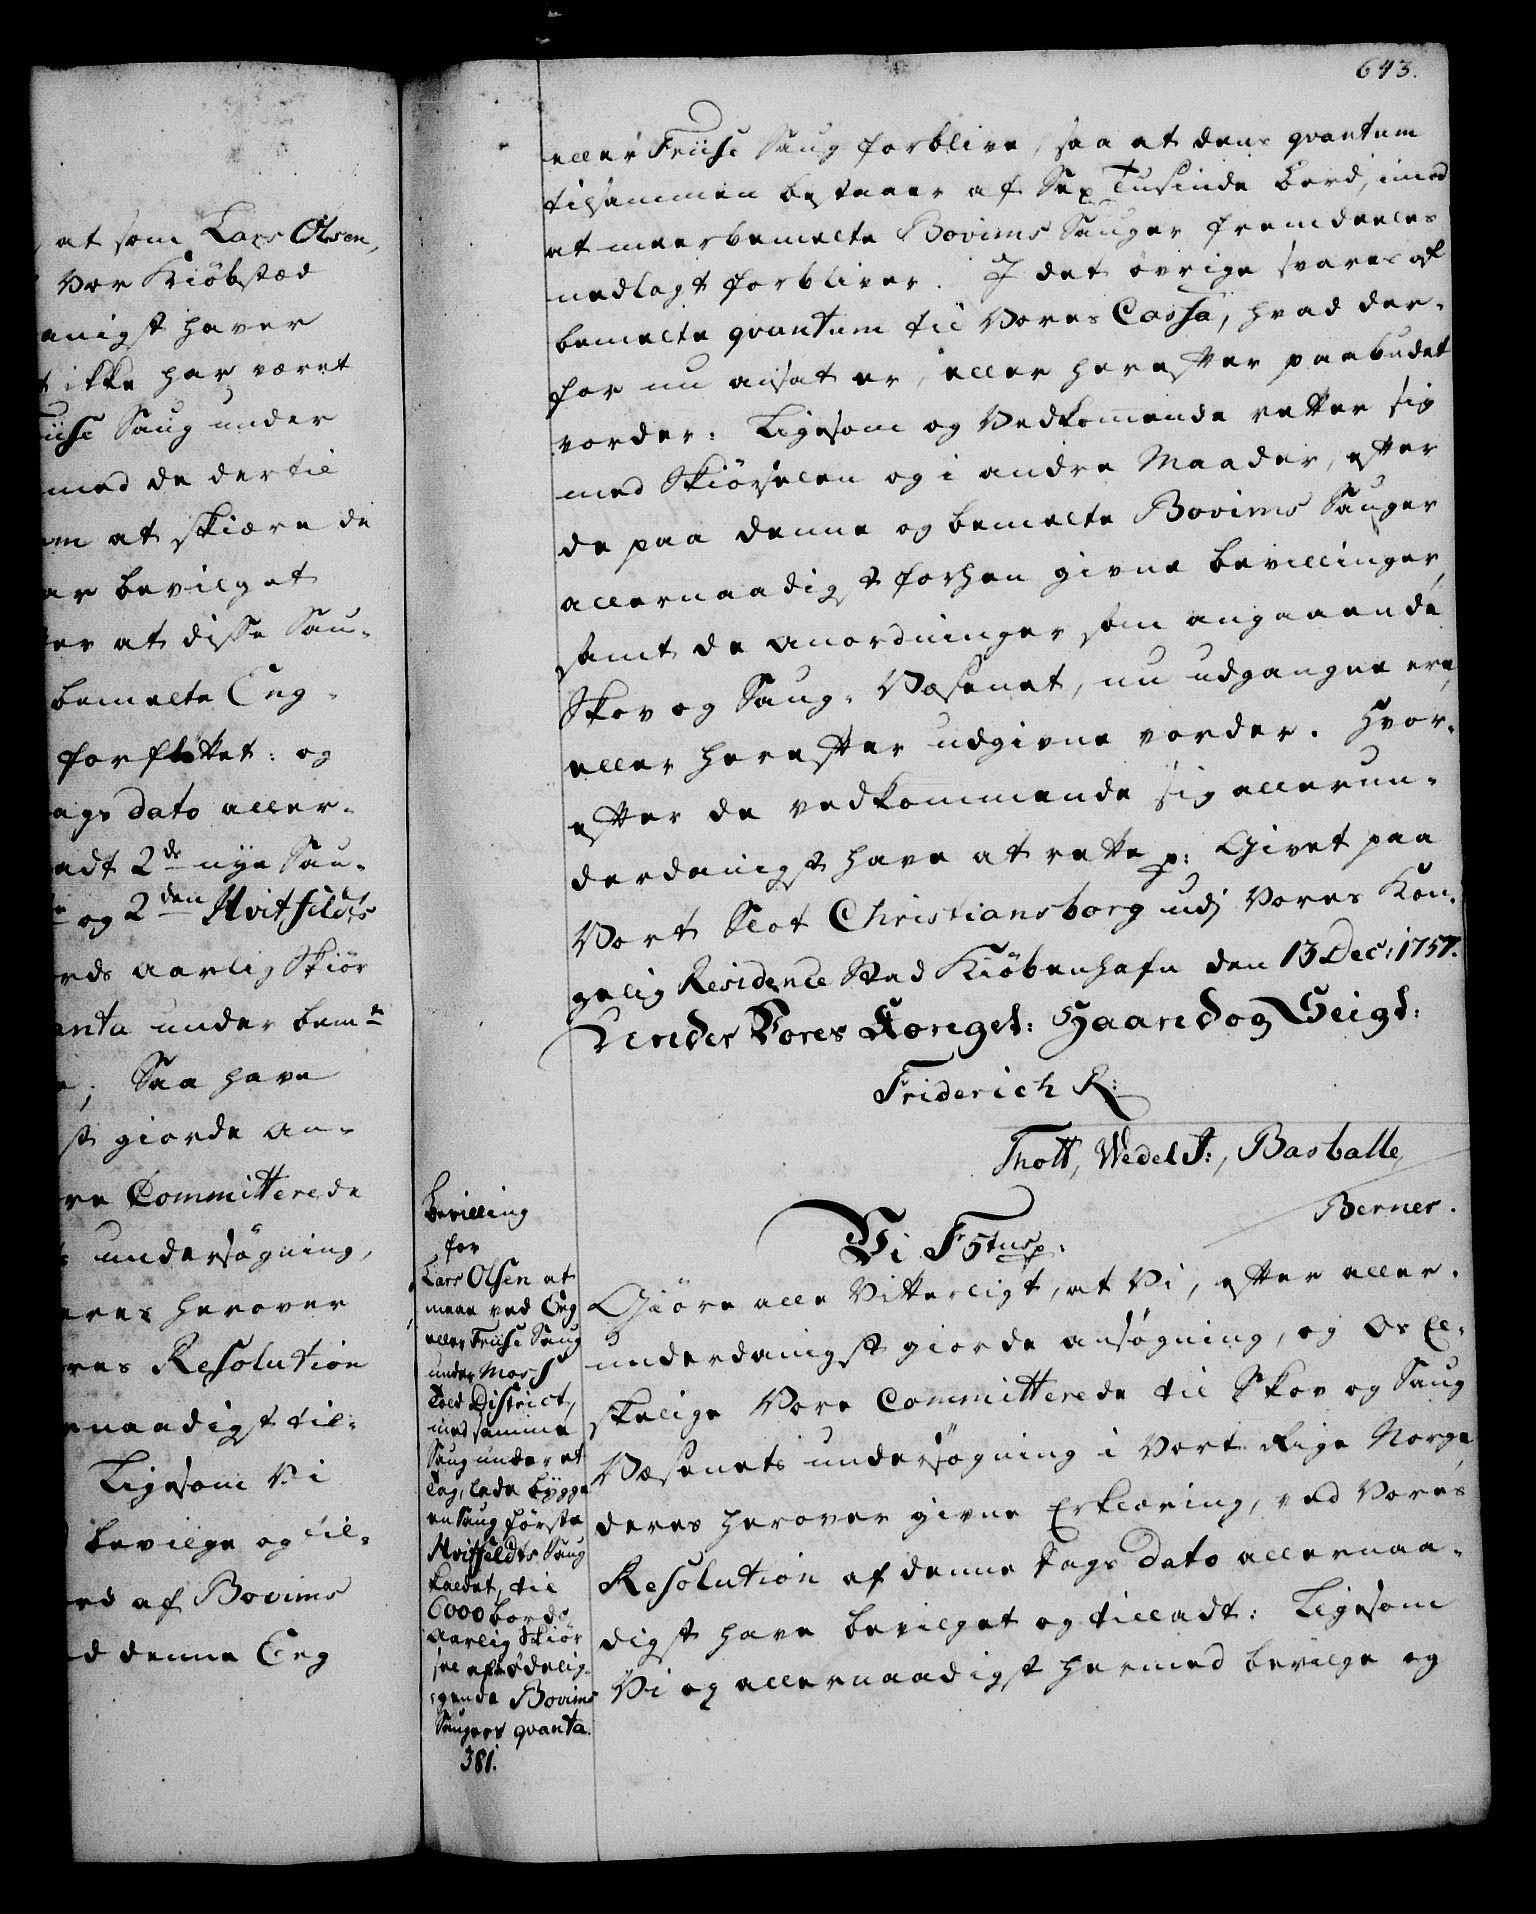 at som Lars Olsen,
Vor Kiöbstæd
anigst haver
ikke har været
iise Saug under
med de dertil
at skiære de
ar bevilget
er at disse Sau-
bemelte Eng-
forfløttet: og
ags dato aller-
adt 2de nye Sau-
og 2den Hvitfeldts
ords aarlig Skiör
anta under bemte
Saa have
st giorde an-
re Committerede
undersøgning,
eres herover
res Resolution
naadigst til-
Ligesom Vi
bevilge og til-
ed af Bovims
d denne Eng
643.
eller Friise Saug forblive, saa at dens qvantum
tilsammen bestaaer af Sex Tusinde bord, imod
at meerbemelte Bovims Sauger fremdeeles
nedlagt forbliver. I det övrige svares af
bemelte qvantum til Vores Cassa, hvad der-
for nu ansat er, eller herefter paabudet
vorder: Ligesom og Vedkomende retter sig
med Skiörselen og i andre Maader, efter
de paa denne og bemelte Bovims Sauger
allernaadigst forhen givne bevillinger,
samt de anordninger som angaaende
Skov og Saug-Væsenet, nu udgangne ere,
eller herefter udgivne vorder. Hvor-
efter de vedkommende sig allerun-
derdanigst have at rette p: Givet paa
Vort Slot Christiansborg udj Vores Kon-
gelig Residence Stad Kiöbenhafn den 13 Dec: 1757.
Under Vores Kongel: Haand og Seigl:
Friderich R:
Thott, Wedel J:, Basballe,
Berner.
Bevilling
for
Lars Olsen at
maae ved Eng
eller Friise Saug
under Moss
Told District,
med samme
Saug under et
Tag, lade bygge
en Saug første
Hvitfeldts Saug
kaldet, til
6000 bords
aarlig Skiör
sel af ødelig-
gende Bovims
Saugers qvanta.
381.
Vi F 5tus p:
Giöre alle Vitterligt, at Vi, efter aller-
underdanigst giorde ansøgning, og Os El-
skelige Vore Committerede til Skov og Saug
Væsenets undersøgning i Vort Rige Norge,
deres herover givne Erklæring, ved Vores
Resolution af denne Dags Dato allernaa-
digst have bevilget og tilladt: Ligesom
Vi og allernaadigst hermed bevilge og